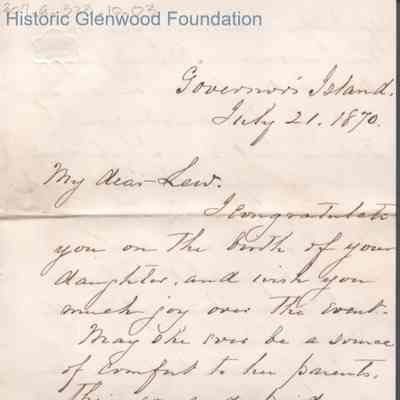 Historic Glenwood Foundation
Governor's Island.
July 21. 1870.
My dear Lew.
I congratulate
you on the birth of your
daughter, and wish you
much joy over the event.
May she ever be a source
of comfort to her parents.